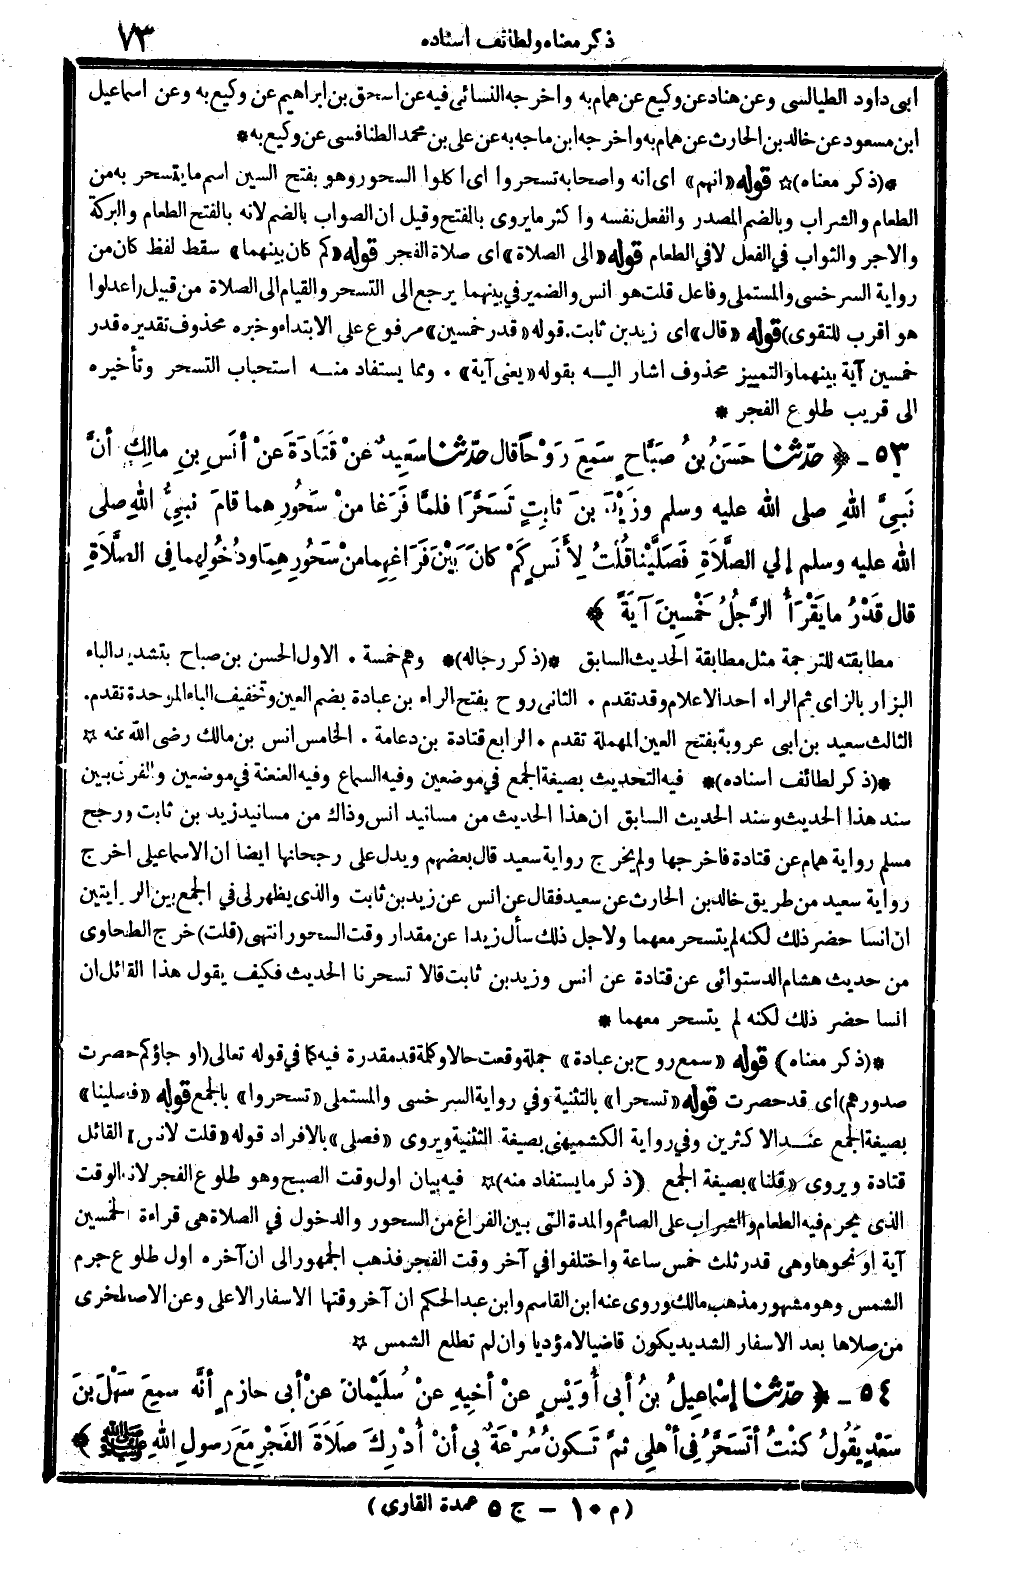 ذكر معناه ولطائف اسناده
٧٣
ابى داود الطيالسى وعن هناد عن وكيع عن همام به واخرجه النسائى فيه عن اسحق بن ابراهيم عن وكيع به وعن اسماعيل
ابن مسعود عن خالد بن الحارث عن همام به واخرجه ابن ماجه به عن على بن محمد الطنافسى عن وكيع به *
* (ذكر معناه) ☆ قوله «انهم» اى انه واصحابه تسحروا اى اكلوا السحور وهو بفتح السين اسم ما يتسحر به من
الطعام والشراب وبالضم المصدر والفعل نفسه واكثر ما يروى بالفتح وقيل ان الصواب بالضم لانه بالفتح الطعام والبركة
والاجر والثواب في الفعل لا في الطعام قوله «الى الصلاة» اى صلاة الفجر قوله «كم كان بينهما» سقط لفظ كان من
رواية السرخسى والمستملى وفاعل قلت هو انس والضمير في بينهما يرجع الى التسحر والقيام الى الصلاة من قبيل (اعدلوا
هو اقرب للتقوى) قوله «قال» اى زيد بن ثابت . قوله «قدر خمسين» مرفوع على الابتداء وخبره محذوف تقديره قدر
خمسين آية بينهما والتمييز محذوف اشار اليه بقوله «يعنى آية» . ومما يستفاد منه استحباب التسحر وتأخيره
الى قريب طلوع الفجر *
٥٣ - ﴿ حَدَّثَنَا حَسَنُ بنُ صَبَّاحٍ سَمِعَ رَوْحًا قال حَدَّثَنَا سَعِيدٌ عَنْ قَتَادَةَ عَنْ أنَسِ بنِ مالِكٍ أنَّ
نَبِيَّ اللهِ صلى الله عليه وسلم وزَيْدَ بنَ ثابِتٍ تَسَحَّرَا فلَمَّا فَرَغَا مِنْ سَحُورِهِما قامَ نبيُّ اللهِ صلى
الله عليه وسلم إلي الصَّلَاةِ فَصَلَّيْنا قُلْتُ لِأَنَسٍ كَمْ كانَ بَيْنَ فَرَاغِهِما مِنْ سَحُورِهِمَا ودُخُولِهِما فِى الصَّلَاةِ
قال قَدْرُ ما يَقْرَأُ الرَّجُلُ خَمْسِينَ آيَةً ﴾
مطابقته للترجمة مثل مطابقة الحديث السابق * (ذكر رجاله) * وهم خمسة . الاول الحسن بن صباح بتشديد الباء
البزار بالزاى ثم الراء احد الاعلام وقد تقدم . الثانى روح بفتح الراء بن عبادة بضم العين وتخفيف الباء الموحدة تقدم .
الثالث سعيد بن ابى عروبة بفتح العين المهملة تقدم . الرابع قتادة بن دعامة . الخامس انس بن مالك رضى الله عنه ☆
* (ذكر لطائف اسناده) * فيه التحديث بصيغة الجمع في موضعين وفيه السماع وفيه العنعنة في موضعين والفرق بين
سند هذا الحديث وسند الحديث السابق ان هذا الحديث من مسانيد انس وذاك من مسانيد زيد بن ثابت ورجح
مسلم رواية همام عن قتادة فاخرجها ولم يخرج رواية سعيد قال بعضهم ويدل على رجحانها ايضا ان الاسماعيلى اخرج
رواية سعيد من طريق خالد بن الحارث عن سعيد فقال عن انس عن زيد بن ثابت والذى يظهر لى في الجمع بين الروايتين
ان انسا حضر ذلك لكنه لم يتسحر معهما ولاجل ذلك سأل زيدا عن مقدار وقت السحور انتهى (قلت) خرج الطحاوى
من حديث هشام الدستوائى عن قتادة عن انس وزيد بن ثابت قالا تسحرنا الحديث فكيف يقول هذا القائل ان
انسا حضر ذلك لكنه لم يتسحر معهما *
* (ذكر معناه) قوله «سمع روح بن عبادة» جملة وقعت حالا وكلمة قد مقدرة فيه كما في قوله تعالى (او جاؤكم حصرت
صدورهم) اى قد حصرت قوله «تسحرا» بالتثنية وفي رواية السرخسى والمستملى «تسحروا» بالجمع قوله «فصلينا»
بصيغة الجمع عند الاكثرين وفي رواية الكشميهنى بصيغة التثنية ويروى «فصلى» بالافراد قوله «قلت لانس» القائل
قتادة ويروى «قلنا» بصيغة الجمع (ذكر ما يستفاد منه) ☆ فيه بيان اول وقت الصبح وهو طلوع الفجر لانه الوقت
الذى يحرم فيه الطعام والشراب على الصائم والمدة التى بين الفراغ من السحور والدخول في الصلاة هى قراءة الخمسين
آية او نحوها وهى قدر ثلث خمس ساعة واختلفوا في آخر وقت الفجر فذهب الجمهور الى ان آخره اول طلوع جرم
الشمس وهو مشهور مذهب مالك وروى عنه ابن القاسم وابن عبد الحكم ان آخر وقتها الاسفار الاعلى وعن الاصطخرى
من صلاها بعد الاسفار الشديد يكون قاضيا لا مؤديا وان لم تطلع الشمس ☆
٥٤ - ﴿ حَدَّثَنَا إسْماعِيلُ بنُ أبى أُوَيْسٍ عنْ أخِيهِ عنْ سُلَيْمَانَ عنْ أبى حازِمٍ أنَّه سمِعَ سَهْلَ بنَ
سَعْدٍ يَقُولُ كُنْتُ أتَسَحَّرُ فِى أهْلِي ثمَّ تَكونُ سُرْعَةٌ بى أنْ أُدْرِكَ صَلَاةَ الفَجْرِ مَعَ رسولِ اللهِ ﷺ ﴾
(م ١٠ – ج ٥ عمدة القارى)